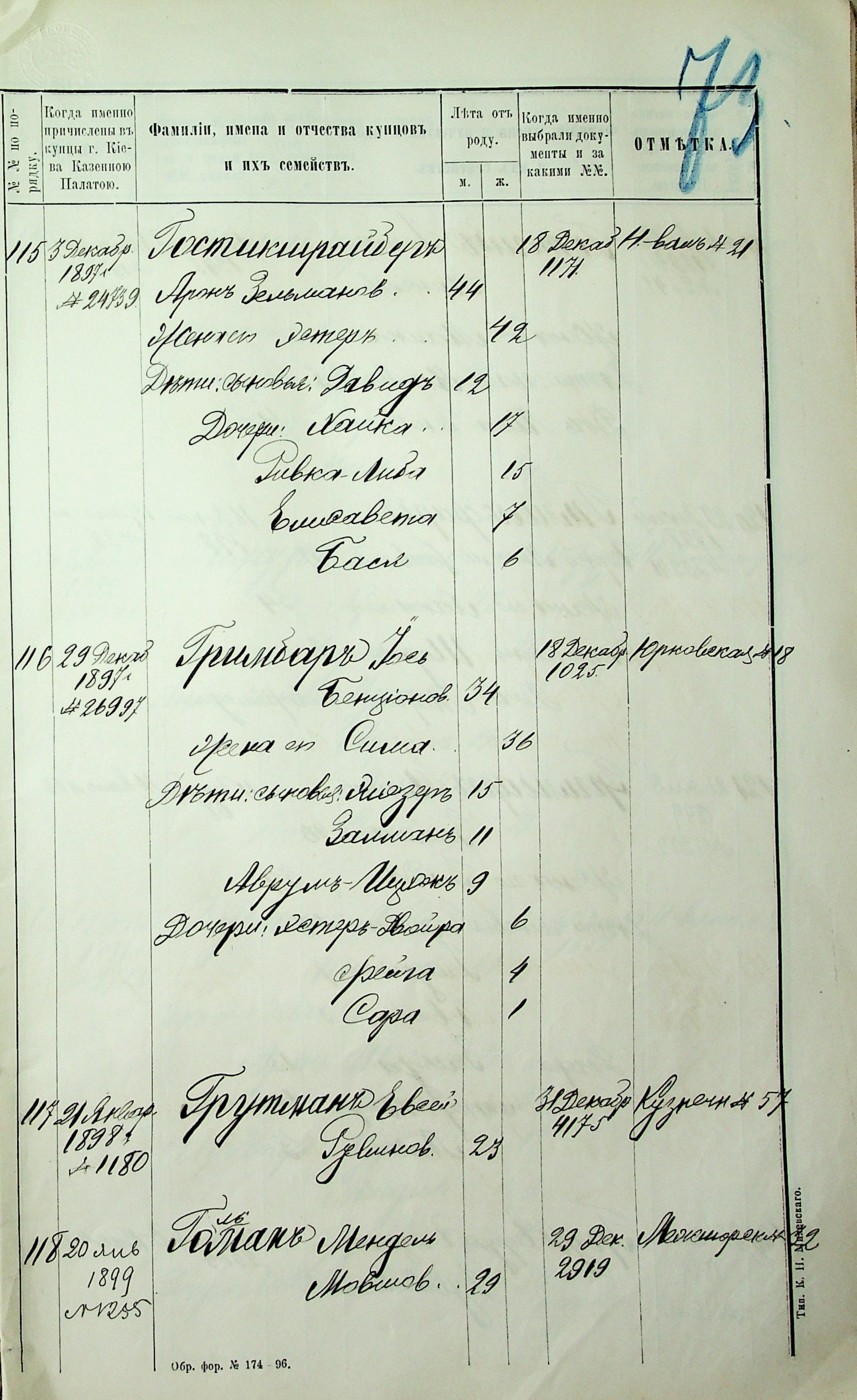 73
№№ по порядку.
Когда именно причислены въ купцы г. Кіева Казенною Палатою.
Фамиліи, имена и отчества купцовъ и ихъ семействъ.
Лѣта отъ роду.
м.
ж.
Когда именно выбрали документы и за какими №№.
ОТМѢТКА.
115 3 Декабр. 18 Декаб
1897 г 1171
№ 24739 Аронъ Зельмановъ. 44
Жена его Эстеръ 42
Дѣти: сыновья: Давидъ 12
Дочери: Хайка 17
Ривка-Либа 15
Елисавета 7
Бася 6
116 29 Декаб Гримбаръ Іось 18 Декабр. Юрковская № 18
1897 г Бенціонов. 34 1025
№ 26997
Жена его Сима. 36
Дѣти: сыновья: 15
Залманъ 11
Аврумъ-Ицхокъ 9
Дочери: Эстеръ-Двойра 6
Фейга 4
Сара 1
117 21 Январ. Грутманъ Евсей 31 Декабр Кузнечн № 57
1898 г Рувинов. 23 4175
№ 1180
118 20 янв Гольманъ Мендель 29 Дек.
1899 Мовшов. 29 2919
№ 1235
Обр. фор. № 174—96.
Тип. К. Н. Милевскаго.